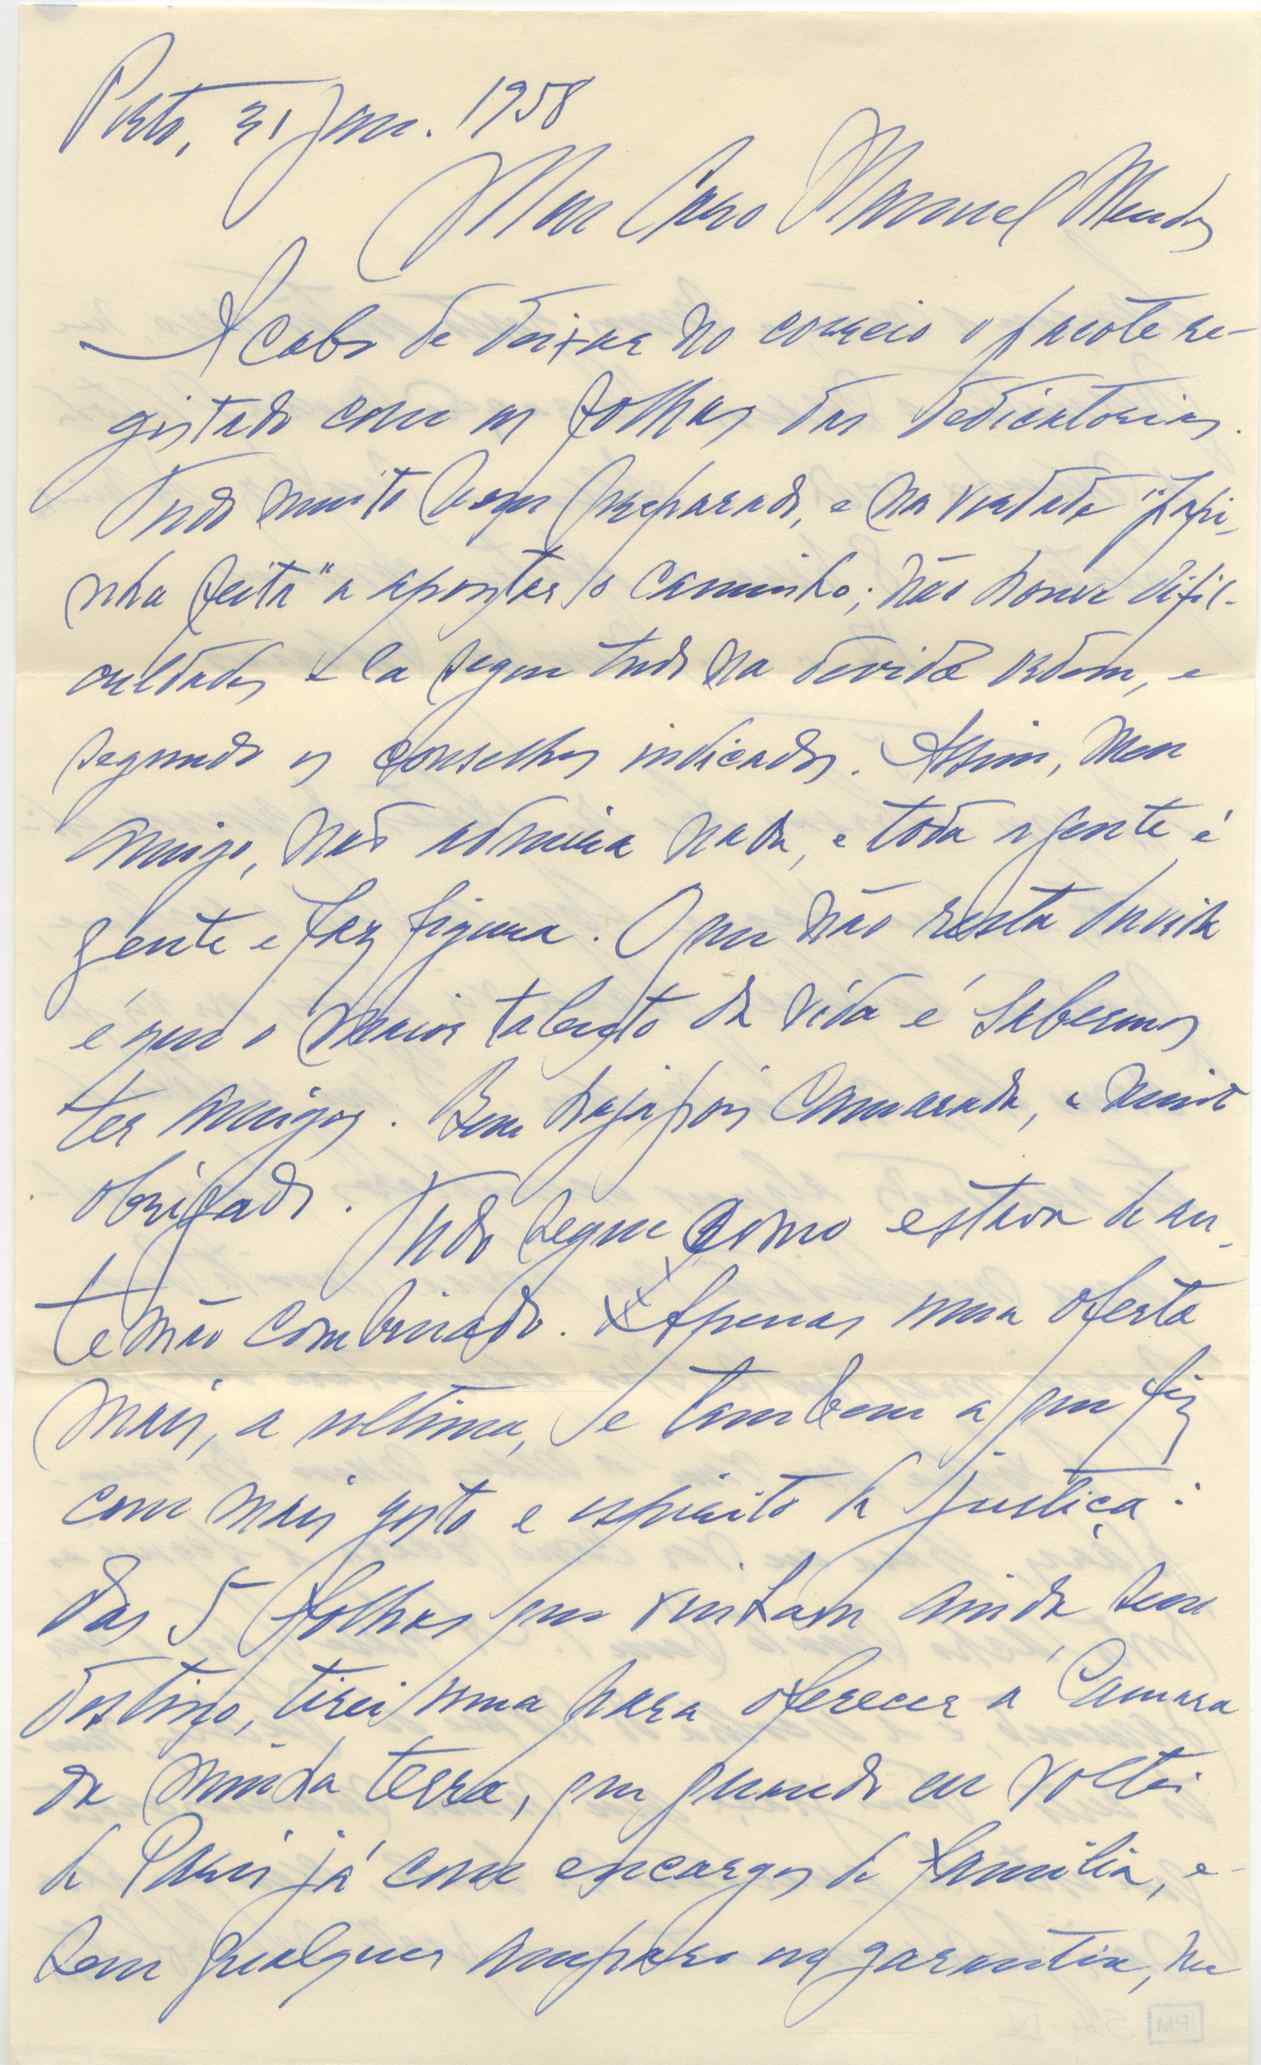 Porto, 31 Jan. 1958
Meu Caro Manuel Mendes
Acabo de deixar no correio o pacote re-
gistado com as folhas das dedicatorias.
Tudo muito bem preparado, e na verdade "papi-
nha feita" a apontar o caminho; não houve difi-
culdades e la segue tudo na devida ordem, e
segundo os conselhos indicados. Assim, meu
amigo, não admira nada, e toda a gente é
gente e faz figura. O que não resta duvida
é que o maior talento da vida é sabermos
ter amigos. Bem haja pois Camarada, e muito
obrigado. Tudo segue como estava de an-
temão combinado. Apenas uma oferta
mais, a ultima, e tambem a que fiz
com mais gosto e espirito de justiça:
das 5 folhas que vinham ainda sem
destino, tirei uma para oferecer á Camara
da minha terra, que quando eu voltei
de Paris já com encargos de familia, e
sem qualquer amparo ou garantia, me